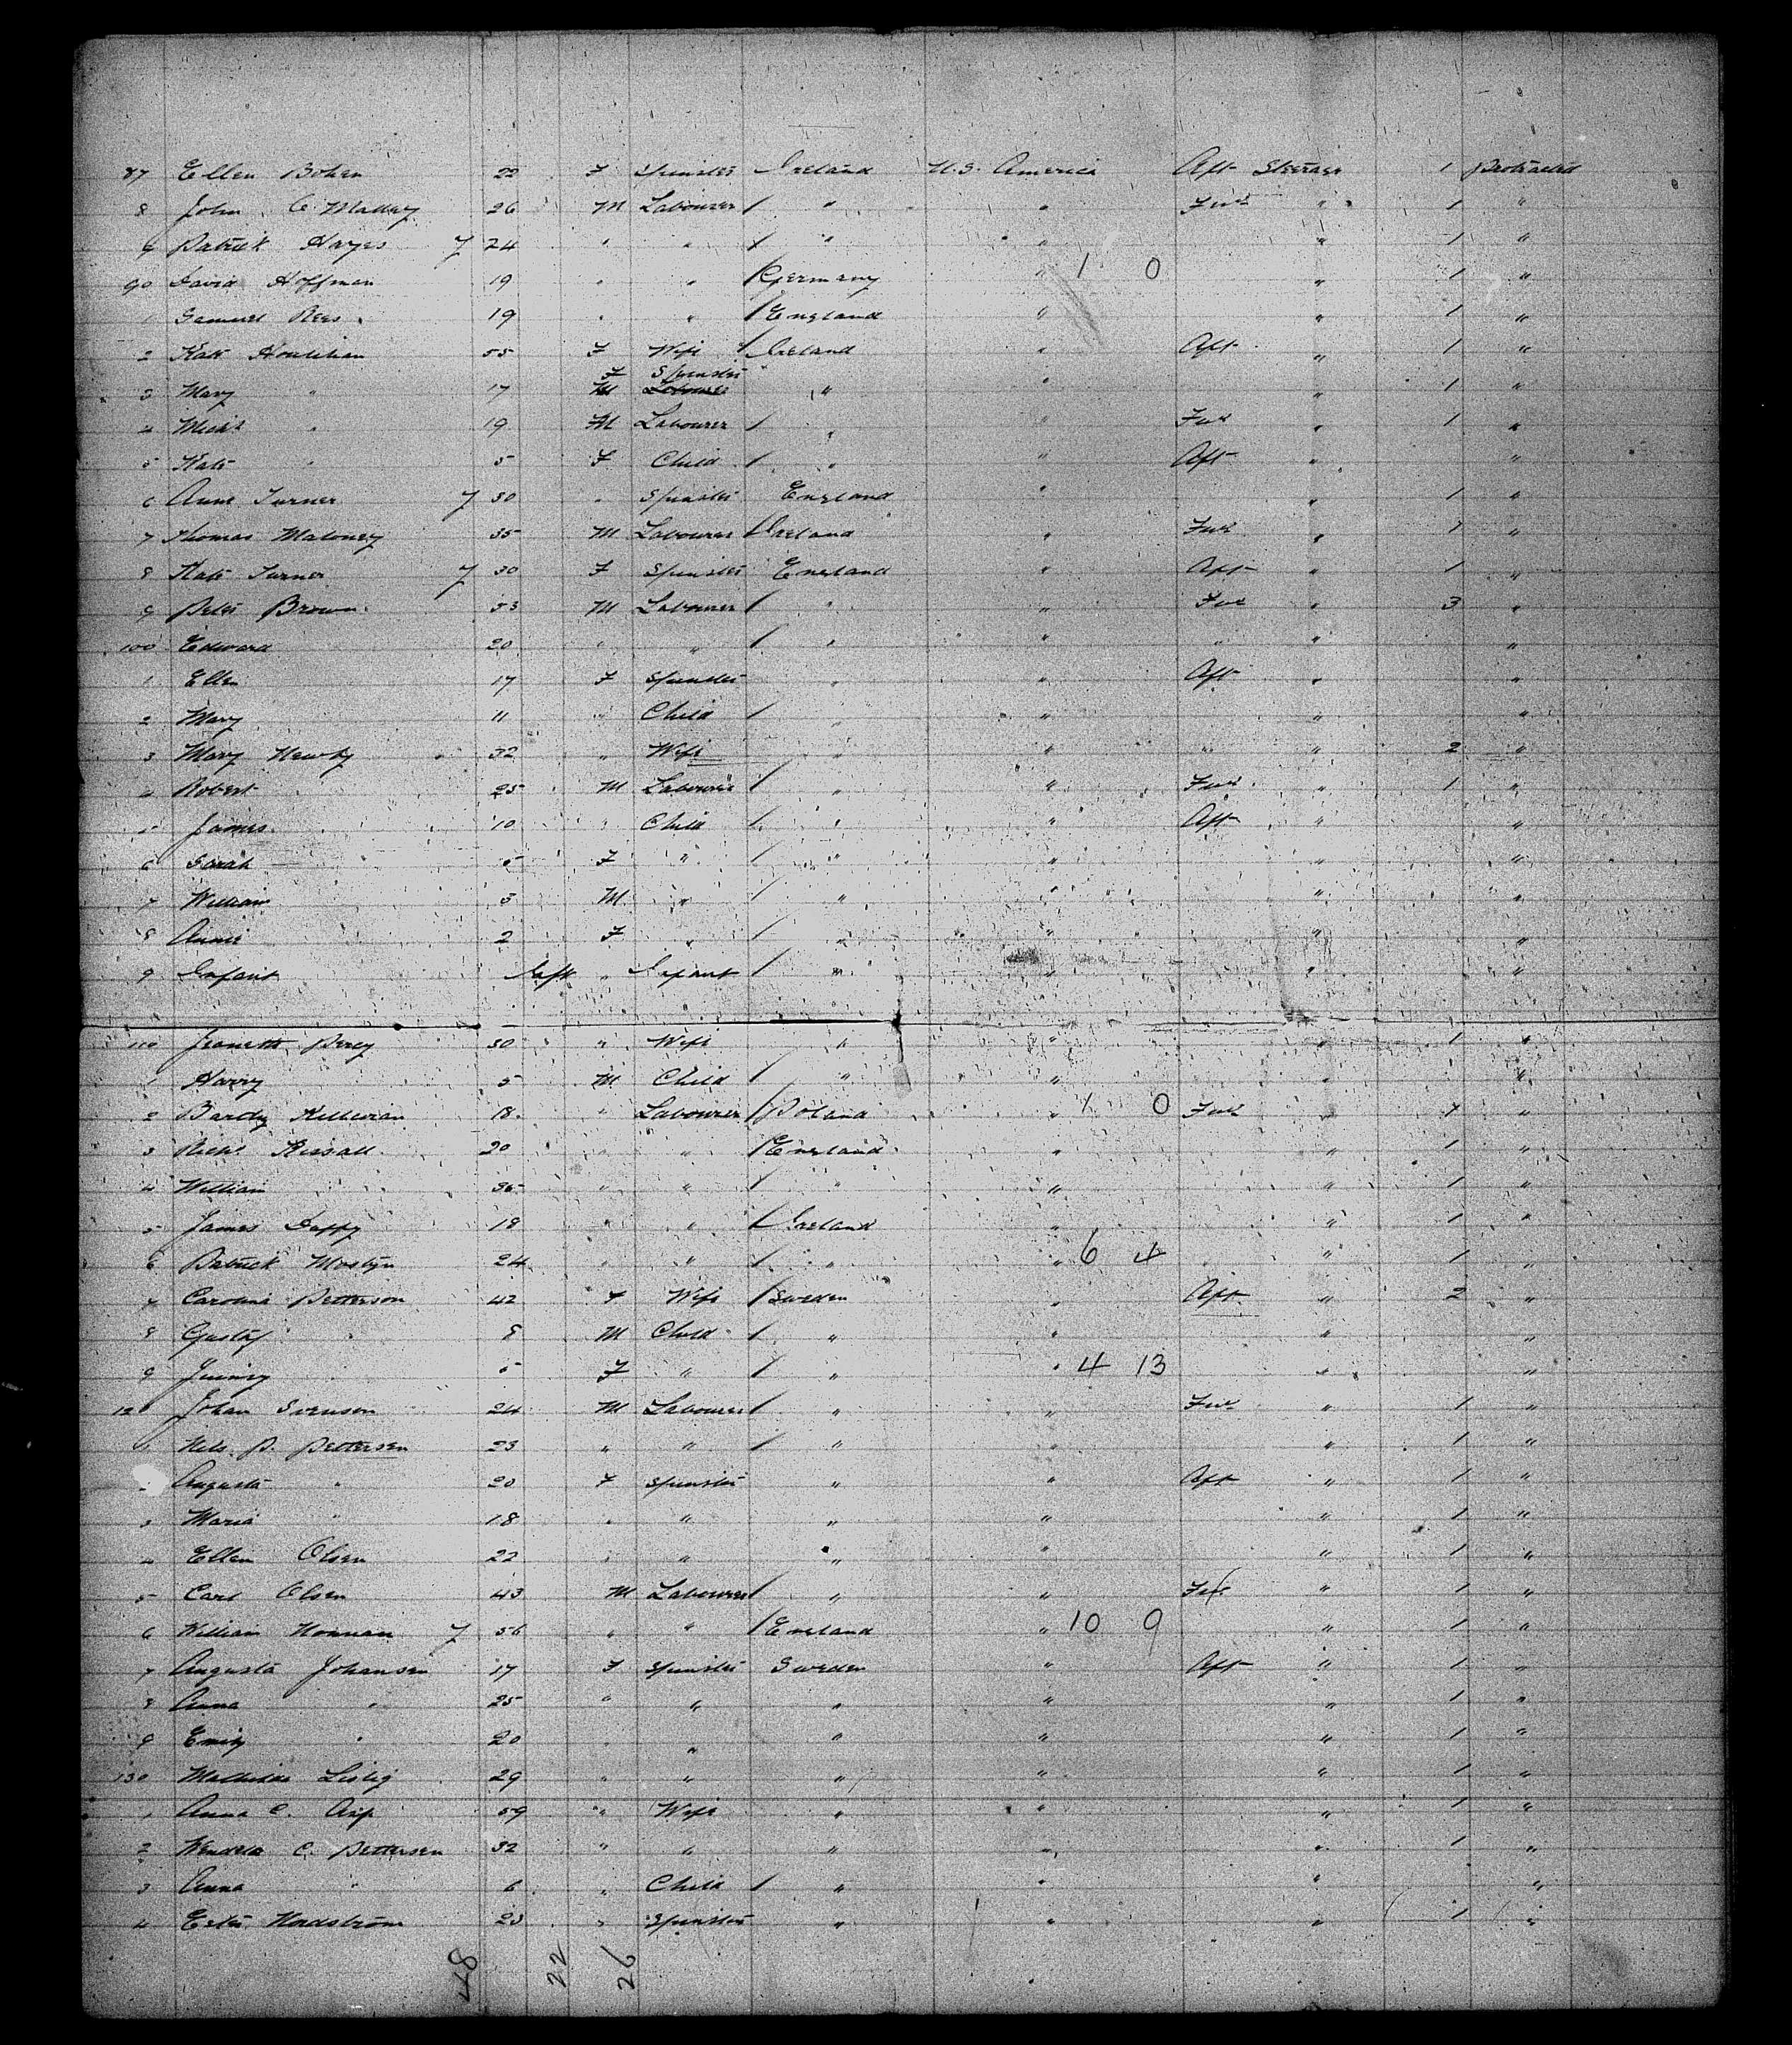 87 Ellen Bohen 22 F Spinster Ireland U.S. America Aft Steerage 1 Protracted
8 John O'Malley 26 M Labourer / " " Fwd " 1 "
9 Patrick Hayes 7 24 " " / " " " 1 "
90 David Hoffman 19 " " / Germany " 1 0 " 1 "
1 Samuel Rees 19 " " / England " " 1 "
2 Kate Houlihan 55 F Wife / Ireland " Aft " 1 "
F Spinster
3 Mary " 17 M Labourer " " " 1 "
4 Michl " 19 M Labourer / " " Fwd " 1 "
5 Kate " 5 F Child / " " Aft " "
6 Anne Turner 7 30 " Spinster England " " 1 "
7 Thomas Maloney 35 M Labourer / Ireland " Fwd " 1 "
8 Kate Turner 7 30 F Spinster England " Aft " 1 "
9 Peter Brown 53 M Labourer / " " Fwd " 3 "
100 Edward 20 " " / " " " " "
1 Ellen 17 F Spinster " " Aft " "
2 Mary 11 " Child / " " " "
3 Mary Newby 32 " Wife " " " " 2 "
4 Robert 25 M Labourer / " " Fwd " 1 "
5 James 10 " Child / " " Aft " "
6 Sarah 5 F " / " " " "
7 William 3 M " / " " " "
8 Annie 2 F " / " " " "
9 Infant Inft " Infant / " " " "
110 Jeanette Percy 30 " Wife " " " 1 "
1 Harry 5 M Child / " " " "
2 18 " Labourer / Poland " 1 0 Fwd " 1 "
3 Richd 20 " " / England " " 1 "
4 William 36 " " / " " " 1 "
5 James 18 " " / Ireland " " 1 "
6 Patrick Mostyn 24 " " / " " 6 4 " 1 "
7 Carolina Petterson 42 F Wife / Sweden " Aft " 2 "
8 Gustaf " 8 M Child / " " " "
9 " 5 F " / " " 4 13 " "
120 Johan Svenson 24 M Labourer / " " Fwd " 1 "
1 Nils P. Pettersen 23 " " / " " " 1 "
2 Augusta " 20 F Spinster " " Aft " 1 "
3 Maria " 18 " " " " " 1 "
4 Ellen Olsen 22 " " " " " 1 "
5 Carl Olsen 43 M Labourer / " " Fwd " 1 "
6 William 7 56 " " / England " 10 9 " 1 "
7 Augusta Johansen 17 F Spinster Sweden " Aft " 1 "
8 Anna " 25 " " " " " 1 "
9 Emily " 20 " " " " " 1 "
130 29 " " " " " 1 "
1 Anna C. 59 " Wife " " " 1 "
2 C. Pettersen 32 " " " " " 1 "
3 Anna " 6 " Child / " " " "
4 Ester Nordstrom 23 " Spinster " " " 1 "
48 22 26